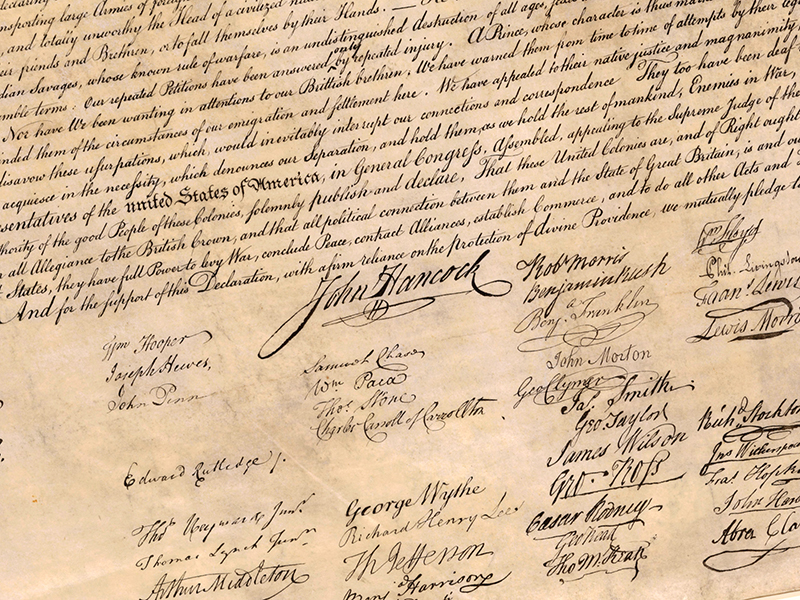 nsporting large Armies of foreign
and totally unworthy the Head of a civilized
eir friends and Brethren, or to fall themselves by their Hands. —
dian Savages, whose known rule of warfare, is an undistinguished destruction of all ages,
mble terms: Our repeated Petitions have been answered only by repeated injury. A Prince, whose character is thus
Nor have We been wanting in attentions to our Brittish brethren. We have warned them from time to time of attempts by their
nded them of the circumstances of our emigration and settlement here. We have appealed to their native justice and magnanimity
disavow these usurpations, which, would inevitably interrupt our connections and correspondence They too have been deaf
acquiesce in the necessity, which denounces our Separation, and hold them, as we hold the rest of mankind, Enemies in War,
esentatives of the united States of America, in General Congress, Assembled, appealing to the Supreme Judge of the
thority of the good People of these Colonies, solemnly publish and declare, That these United Colonies are, and of Right ought
all Allegiance to the British Crown, and that all political connection between them and the State of Great Britain, is and ou
t States, they have full Power to levy War, conclude Peace, contract Alliances, establish Commerce, and to do all other Acts and
And for the support of this Declaration, with a firm reliance on the protection of divine Providence, we mutually pledge to
John Hancock
Wm Hooper
Joseph Hewes,
John Penn
Edward Rutledge /.
Thos Heyward Junr.
Thomas Lynch Junr.
Arthur Middleton
Samuel Chase
Wm. Paca
Thos. Stone
Charles Carroll of Carrollton
George Wythe
Richard Henry Lee
Th Jefferson
Benj Harrison
Robt Morris
Benjamin Rush
Benja. Franklin
John Morton
Geo Clymer
Jas. Smith
Geo. Taylor
James Wilson
Geo. Ross
Caesar Rodney
Geo Read
Tho M:Kean
Wm Floyd
Phil. Livingston
Frans. Lewis
Lewis Morris
Richd. Stockton
Jno Witherspoon
Fras. Hopk
John Hart
Abra Cla